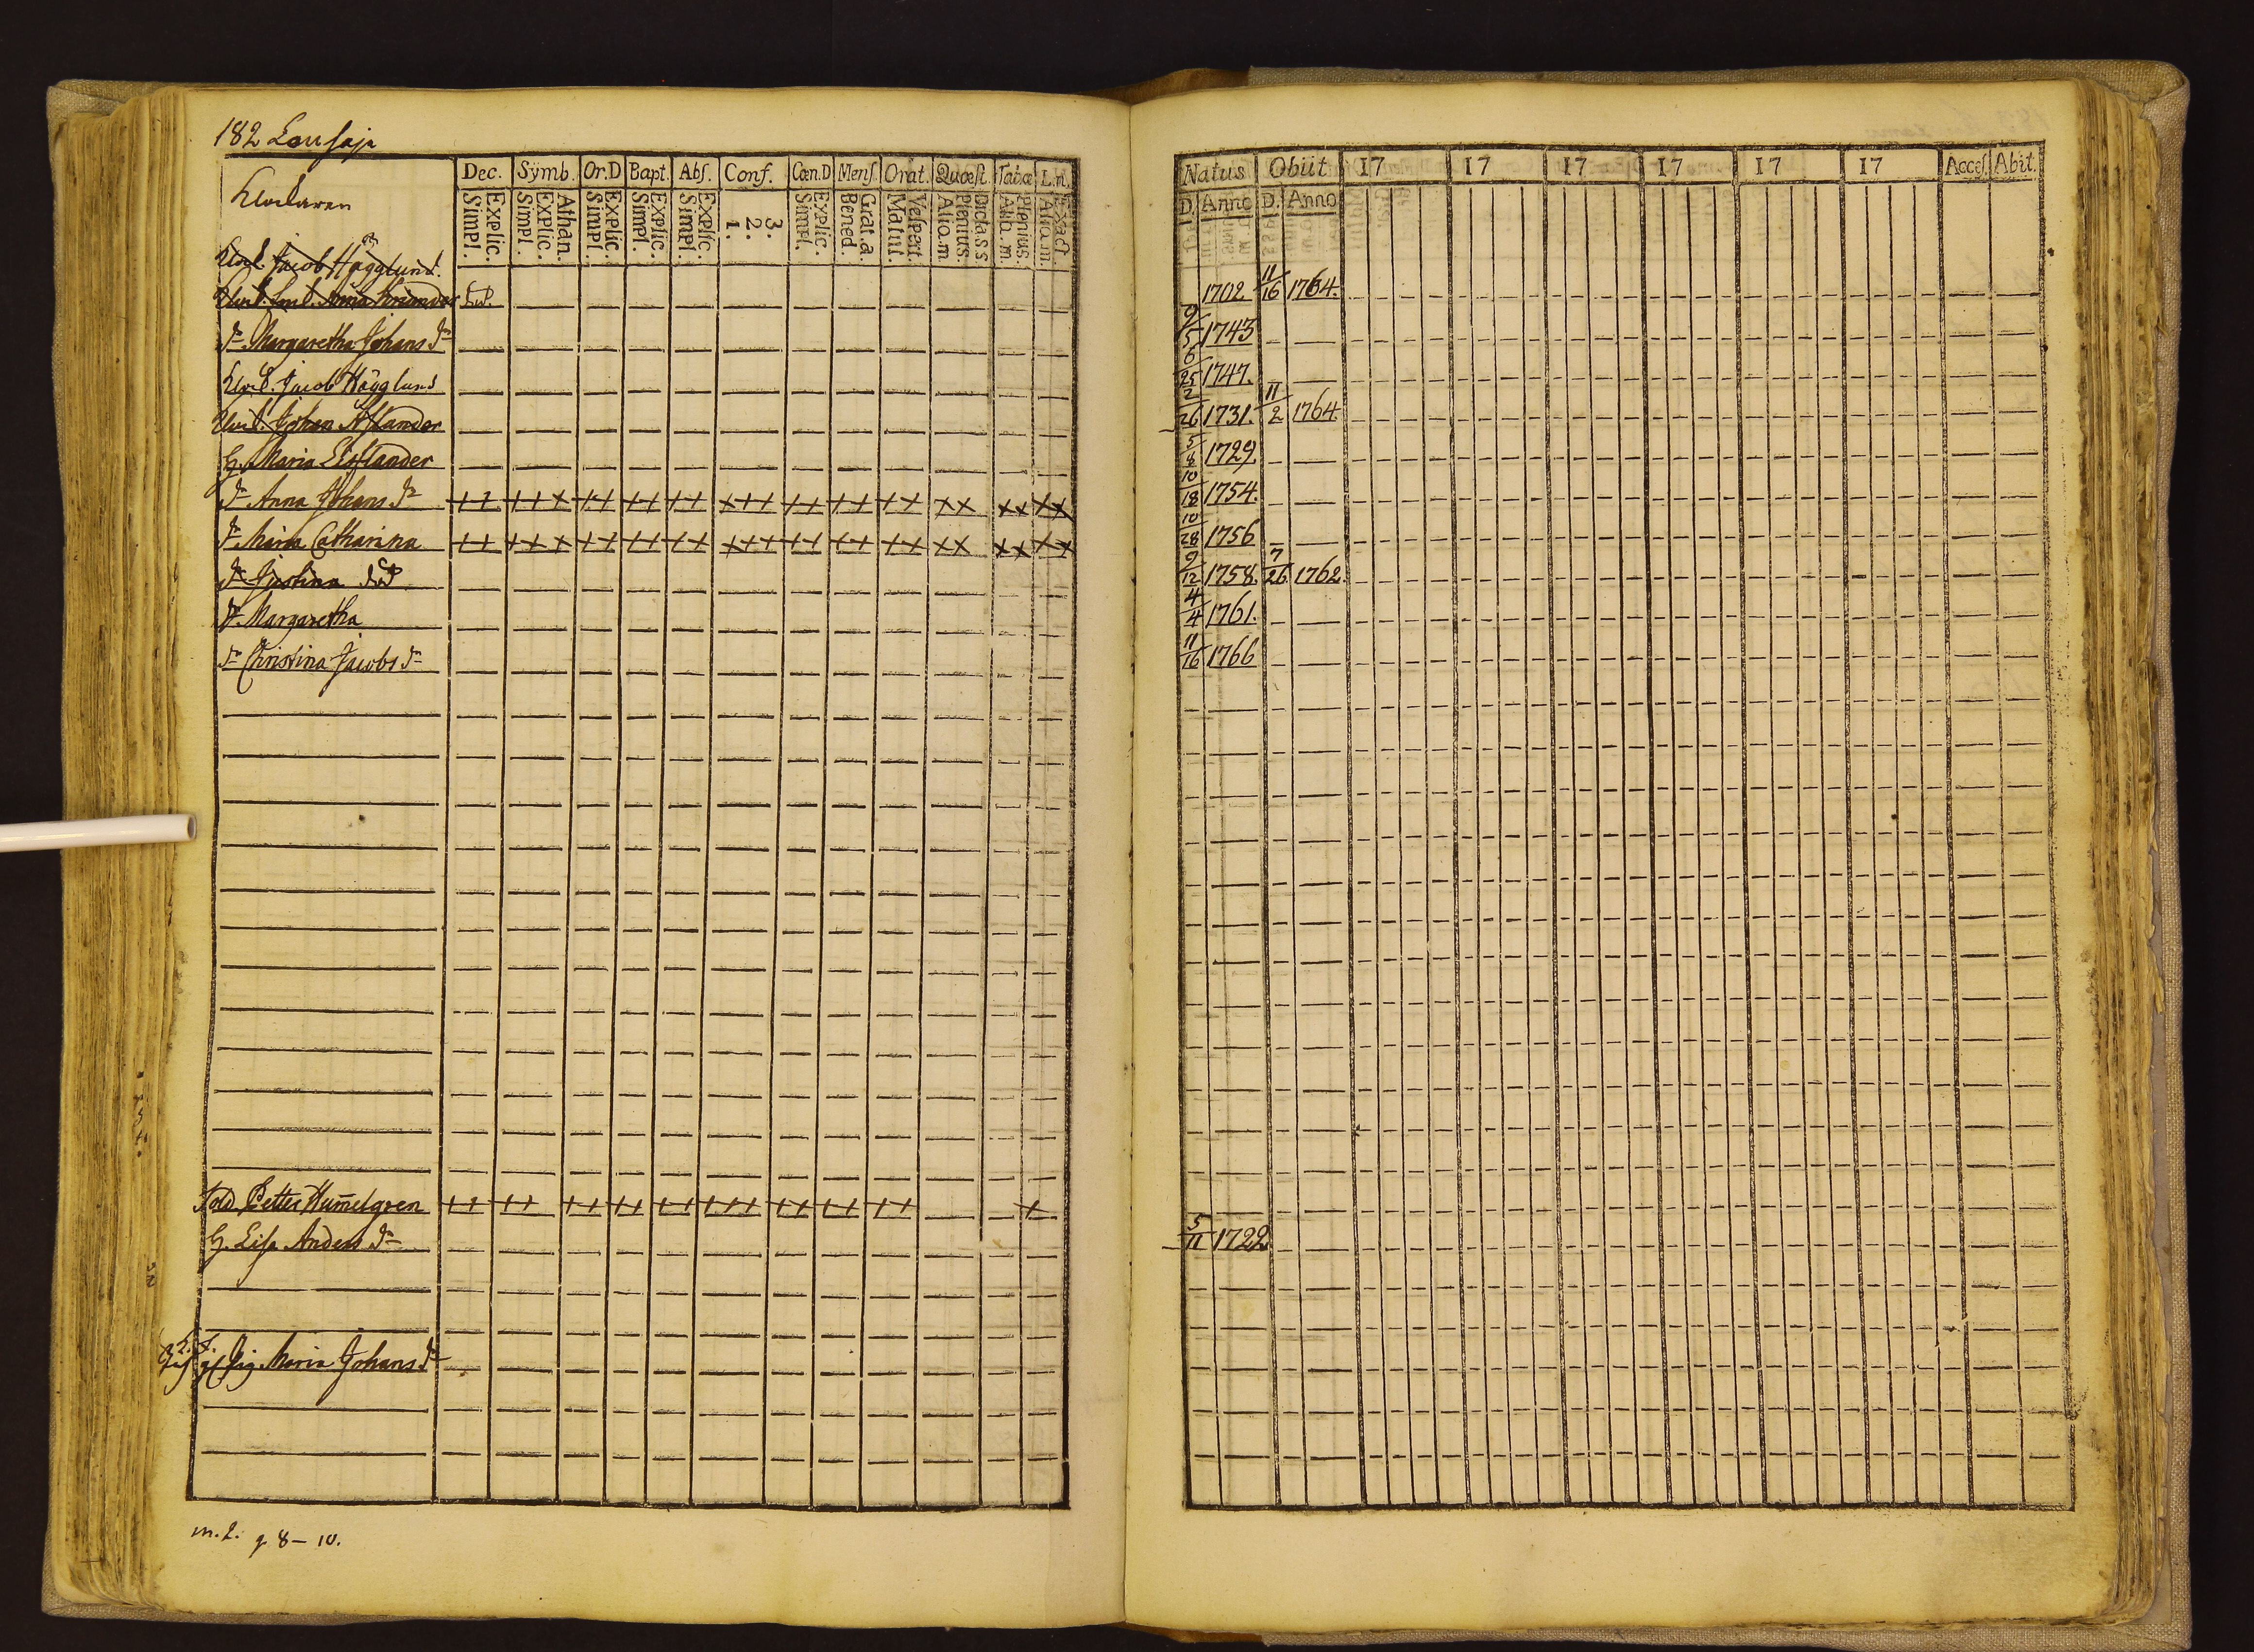 182 Lousaja
Klockaren
Dec. Sÿmb. Or.D Bapt. Abſ. Conf. Cœn.D Menſ Orat. Quæſt. Tab.œ L.n.
Explic. Simpl. Athan. Explic. Simpl. Explic. Simpl. Explic. Simpl. Explic. Simpl. 3. 2. 1. Explic. Simpl. Grat.a. Bened. Veſpert. Matut. Dicta.s.s Plenius. Alio.m. Plenius. Alio.m. Exact. Alio.m.
Natus Obiit 17 17 17 17 17 17 Acceſ. Abit.
D. Anno D. Anno
Jacob Hägglund.
Anna 1702. 11/16 1764.
Dr. Margaretha Johans Dr 9/5 1743
Jacob Hägglund 6/25 1747.
Johan 2/26 1731. 11/2 1764.
H. Maria Elfflander 5/8 1729.
Dr Anna Johans Dr ++ +++ ++ ++ ++ +++ ++ ++ ++ ×× ×× ×× 10/18 1754.
Dr. Maria Catharina ++ +++ ++ ++ ++ +++ ++ ++ ++ ×× ×× ×× 10/28 1756
Dr Justina död 9/12 1758. 7/26 1762.
Dr. Margaretha 4/4 1761.
Dr Christina Jacobs Dr 11/16 1766
Sold. Petter Hum̄elgren ++ ++ ++ ++ ++ +++ ++ ++ ++ +
H. Lisa Anders Dr 5/11 1722
Pig. Maria Johans Dr
m. 2. q 8 – 10.